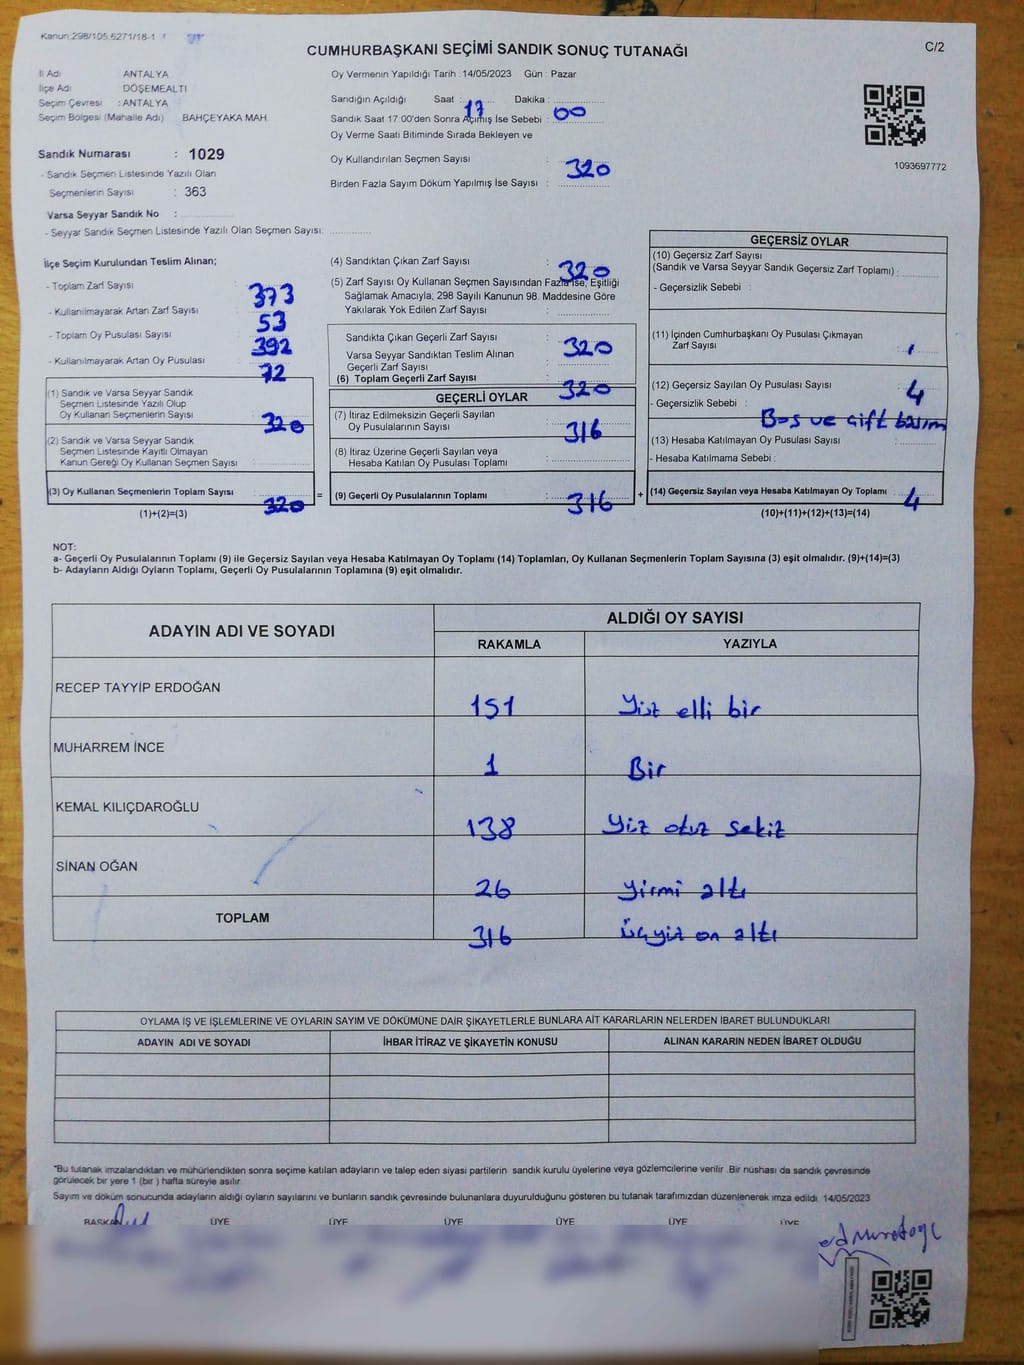 Kanun:298/105.6271/18-1
CUMHURBAŞKANI SEÇİMİ SANDIK SONUÇ TUTANAĞI
C/2
İl Adı ANTALYA
İlçe Adı DÖŞEMEALTI
Seçim Çevresi : ANTALYA
Seçim Bölgesi (Mahalle Adı) BAHÇEYAKA MAH.
Sandık Numarası : 1029
- Sandık Seçmen Listesinde Yazılı Olan
Seçmenlerin Sayısı : 363
Varsa Seyyar Sandık No :
- Seyyar Sandık Seçmen Listesinde Yazılı Olan Seçmen Sayısı:
Oy Vermenin Yapıldığı Tarih : 14/05/2023 Gün : Pazar
Sandığın Açıldığı Saat : 17 Dakika : 00
Sandık Saat 17:00'den Sonra Açılmış İse Sebebi :
Oy Verme Saati Bitiminde Sırada Bekleyen ve
Oy Kullandırılan Seçmen Sayısı : 320
Birden Fazla Sayım Döküm Yapılmış İse Sayısı :
1093697772
İlçe Seçim Kurulundan Teslim Alınan;
- Toplam Zarf Sayısı 373
- Kullanılmayarak Artan Zarf Sayısı 53
- Toplam Oy Pusulası Sayısı 392
- Kullanılmayarak Artan Oy Pusulası 72
(1) Sandık ve Varsa Seyyar Sandık
Seçmen Listesinde Yazılı Olup
Oy Kullanan Seçmenlerin Sayısı 320
(2) Sandık ve Varsa Seyyar Sandık
Seçmen Listesinde Kayıtlı Olmayan
Kanun Gereği Oy Kullanan Seçmen Sayısı
(3) Oy Kullanan Seçmenlerin Toplam Sayısı 320
(1)+(2)=(3)
(4) Sandıktan Çıkan Zarf Sayısı : 320
(5) Zarf Sayısı Oy Kullanan Seçmen Sayısından Fazla İse, Eşitliği
Sağlamak Amacıyla; 298 Sayılı Kanunun 98. Maddesine Göre
Yakılarak Yok Edilen Zarf Sayısı :
Sandıkta Çıkan Geçerli Zarf Sayısı : 320
Varsa Seyyar Sandıktan Teslim Alınan
Geçerli Zarf Sayısı :
(6) Toplam Geçerli Zarf Sayısı : 320
GEÇERLİ OYLAR
(7) İtiraz Edilmeksizin Geçerli Sayılan
Oy Pusulalarının Sayısı : 316
(8) İtiraz Üzerine Geçerli Sayılan veya
Hesaba Katılan Oy Pusulası Toplamı :
= (9) Geçerli Oy Pusulalarının Toplamı : 316 +
GEÇERSİZ OYLAR
(10) Geçersiz Zarf Sayısı
(Sandık ve Varsa Seyyar Sandık Geçersiz Zarf Toplamı) :
- Geçersizlik Sebebi :
(11) İçinden Cumhurbaşkanı Oy Pusulası Çıkmayan
Zarf Sayısı :
(12) Geçersiz Sayılan Oy Pusulası Sayısı : 4
- Geçersizlik Sebebi : Boş ve Çift basım
(13) Hesaba Katılmayan Oy Pusulası Sayısı :
- Hesaba Katılmama Sebebi :
(14) Geçersiz Sayılan veya Hesaba Katılmayan Oy Toplamı : 4
(10)+(11)+(12)+(13)=(14)
NOT:
a- Geçerli Oy Pusulalarının Toplamı (9) ile Geçersiz Sayılan veya Hesaba Katılmayan Oy Toplamı (14) Toplamları, Oy Kullanan Seçmenlerin Toplam Sayısına (3) eşit olmalıdır. (9)+(14)=(3)
b- Adayların Aldığı Oyların Toplamı, Geçerli Oy Pusulalarının Toplamına (9) eşit olmalıdır.
ADAYIN ADI VE SOYADI ALDIĞI OY SAYISI
RAKAMLA YAZIYLA
RECEP TAYYİP ERDOĞAN 151 Yüz elli bir
MUHARREM İNCE 1 Bir
KEMAL KILIÇDAROĞLU 138 Yüz otuz sekiz
SİNAN OĞAN 26 yirmi altı
TOPLAM 316 üçyüz on altı
OYLAMA İŞ VE İŞLEMLERİNE VE OYLARIN SAYIM VE DÖKÜMÜNE DAİR ŞİKAYETLERLE BUNLARA AİT KARARLARIN NELERDEN İBARET BULUNDUKLARI
ADAYIN ADI VE SOYADI İHBAR İTİRAZ VE ŞİKAYETİN KONUSU ALINAN KARARIN NEDEN İBARET OLDUĞU
*Bu tutanak imzalandıktan ve mühürlendikten sonra seçime katılan adayların ve talep eden siyasi partilerin sandık kurulu üyelerine veya gözlemcilerine verilir. Bir nüshası da sandık çevresinde
görülecek bir yere 1 (bir) hafta süreyle asılır.
Sayım ve döküm sonucunda adayların aldığı oyların sayılarını ve bunların sandık çevresinde bulunanlara duyurulduğunu gösteren bu tutanak tarafımızdan düzenlenerek imza edildi. 14/05/2023
BAŞKAN ÜYE ÜYE ÜYE ÜYE ÜYE ÜYE